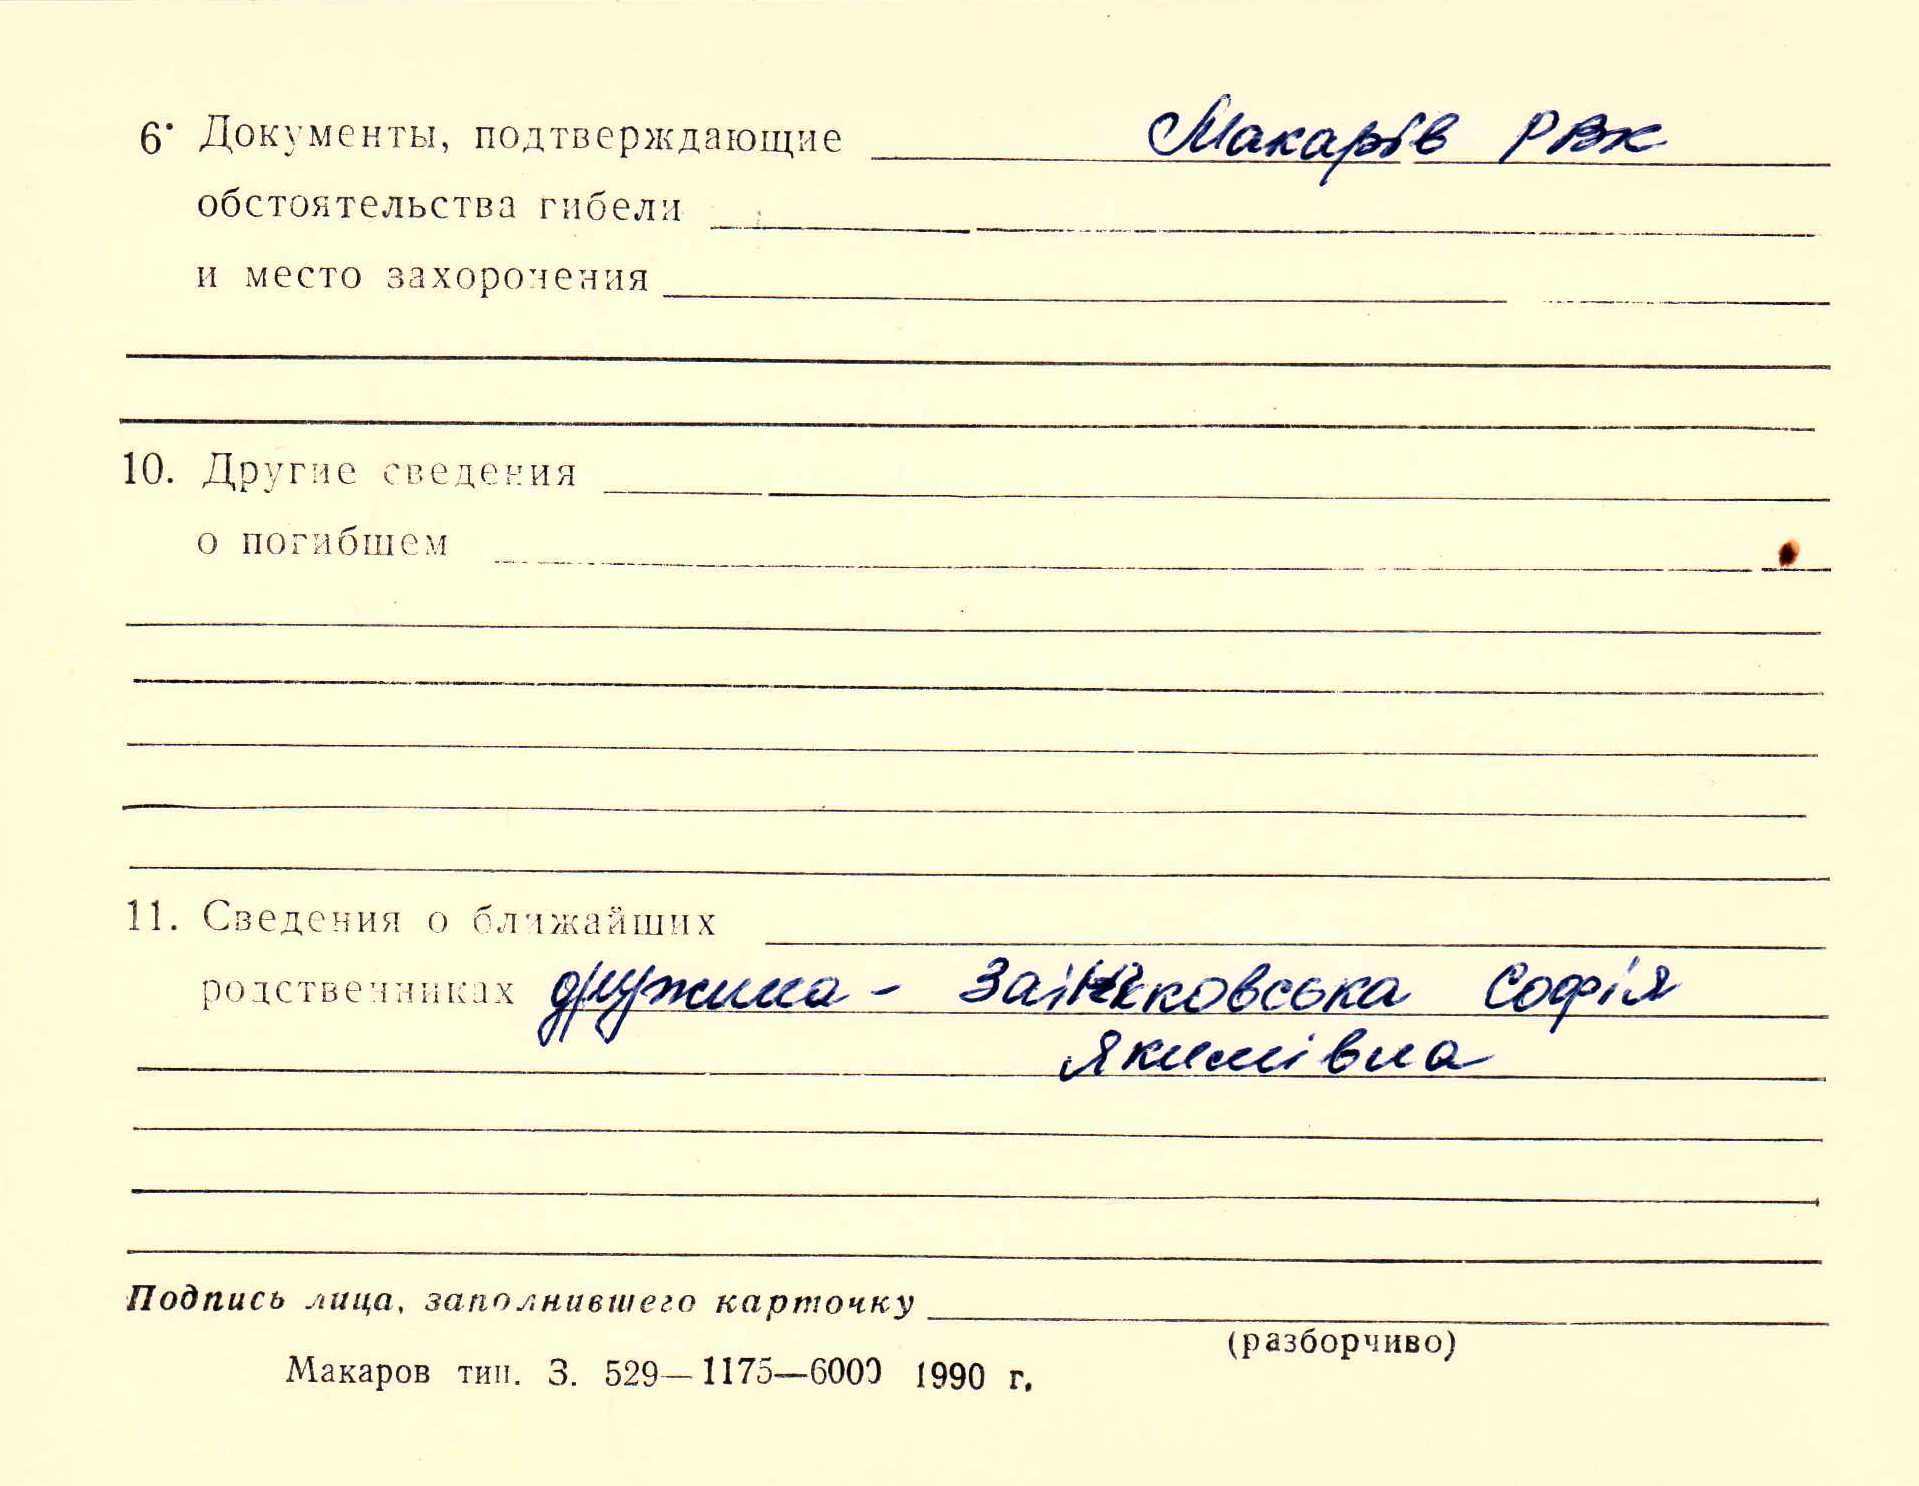 6. Документы, подтверждающие Макарів РВК
обстоятельства гибели
и место захоронения
10. Другие сведения
о погибшем
11. Сведения о ближайших
родственниках дружина - Софія
Якимівна
Подпись лица, заполнившего карточку
(разборчиво)
Макаров тип. З. 529—1175—6000 1990 г.